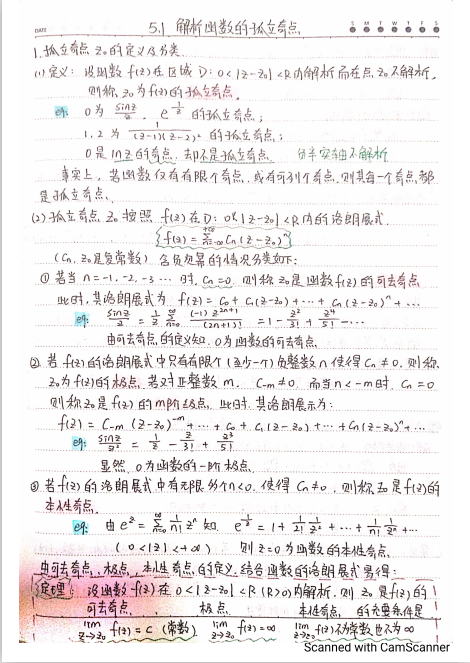 DATE
S M T W T F S
5.1 解析函数的孤立奇点
1.孤立奇点 z₀的定义及分类
(1)定义: 设函数 f(z)在区域 D: 0<|z-z₀|<R内解析,而在点 z₀不解析,
则称 z₀为 f(z)的孤立奇点.
eg: 0为 sinz/z, e^(1/z) 的孤立奇点;
1, 2 为 1/((z-1)(z-2)²) 的孤立奇点;
0是 lnz的奇点,却不是孤立奇点. 负半实轴不解析
事实上,若函数仅有有限个奇点,或有可列个奇点,则其每一个奇点都
是孤立奇点.
(2)孤立奇点 z₀ 按照 f(z)在 D: 0<|z-z₀|<R内的洛朗展式
f(z)=Σ_{n=-∞}^{+∞} Cₙ(z-z₀)ⁿ
(Cₙ, z₀是复常数) 含负次幂的情况分类如下:
① 若当 n=-1,-2,-3 … 时, Cₙ=0, 则称 z₀是函数f(z)的可去奇点
此时,其洛朗展式为 f(z)=C₀+C₁(z-z₀)+…+Cₙ(z-z₀)ⁿ+…
eg: sinz/z = 1/z Σ_{n=0}^{∞} (-1)ⁿz^(2n+1)/(2n+1)! = 1-z²/3!+z⁴/5!-…
由可去奇点的定义知, 0为函数的可去奇点.
② 若 f(z)的洛朗展式中只有有限个(至少一个)负整数 n 使得 Cₙ≠0, 则称
z₀为f(z)的极点, 若对正整数 m, C₋ₘ≠0, 而当 n<-m时, Cₙ=0
则称z₀是f(z)的m阶极点. 此时,其洛朗展示为:
f(z)=C₋ₘ(z-z₀)^(-m)+…+C₀+C₁(z-z₀)+…+Cₙ(z-z₀)ⁿ+…
eg: sinz/z² = 1/z - z/3! + z³/5!
显然, 0为函数的一阶极点.
③ 若f(z)的洛朗展式中有无限多个n<0, 使得 Cₙ≠0, 则称 z₀是f(z)的
本性奇点.
eg: 由 e^z=Σ_{n=0}^{∞} 1/n! zⁿ 知, e^(1/z)=1+1/z+1/2! 1/z²+…+1/n! 1/zⁿ+…
(0<|z|<+∞) 则 z=0为函数的本性奇点.
由可去奇点、极点、本性奇点的定义,结合函数的洛朗展式易得:
定理: 设函数 f(z)在 0<|z-z₀|<R (R>0)内解析, 则 z₀是f(z)的
可去奇点、 极点、 本性奇点 的充要条件是
lim_{z→z₀} f(z)=C (常数) lim_{z→z₀} f(z)=∞ lim_{z→z₀} f(z)不为常数也不为∞
Scanned with CamScanner